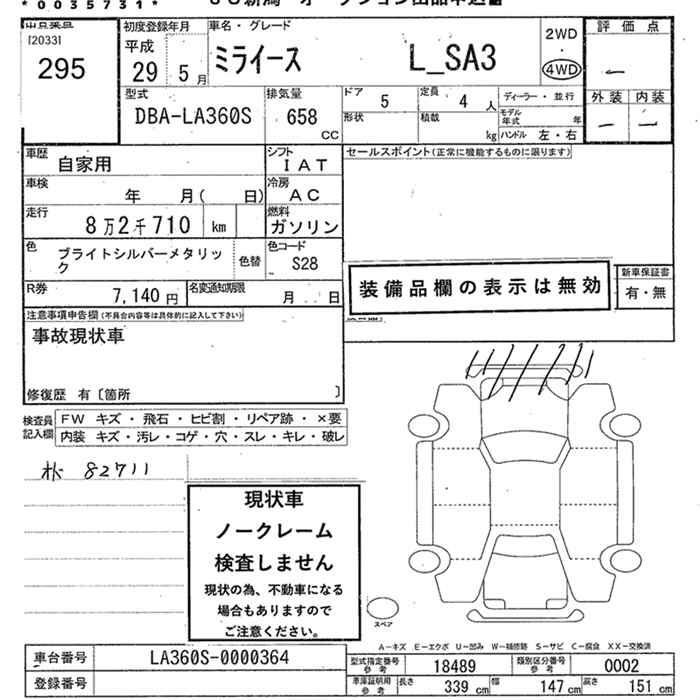 *0035731*
[2033]
295
初度登録年月
平成
29 5月
車名・グレード
ミライース L_SA3
2WD
・
4WD
評価点
外装 内装
型式
DBA-LA360S
排気量
658
CC
ドア
5
定員
4人
形状
積載
kg
ディーラー・並行
モデル年式 年
ハンドル 左・右
車歴
自家用
シフト
IAT
車検
年 月( 日)
冷房
AC
走行
8万2千710 km
燃料
ガソリン
色
ブライトシルバーメタリック
色替
色コード
S28
R券
7,140円
名変通知期限
月 日
セールスポイント(正常に機能するものに限ります)
装備品欄の表示は無効
新車保証書
有・無
注意事項申告欄(不具合内容等は具体的に記入して下さい)
事故現状車
修復歴 有〔箇所 〕
検査員記入欄
FW キズ・飛石・ヒビ割・リペア跡・×要
内装 キズ・汚レ・コゲ・穴・スレ・キレ・破レ
82711
現状車
ノークレーム
検査しません
現状の為、不動車になる
場合もありますので
ご注意ください。
スペア
A-キズ E-エクボ U-凹み W-補修跡 S-サビ C-腐食 XX-交換済
車台番号
LA360S-0000364
登録番号
型式指定番号 参考
18489
類別区分番号 参考
0002
車庫証明用 参考
長さ 339 cm
幅 147 cm
高さ 151 cm